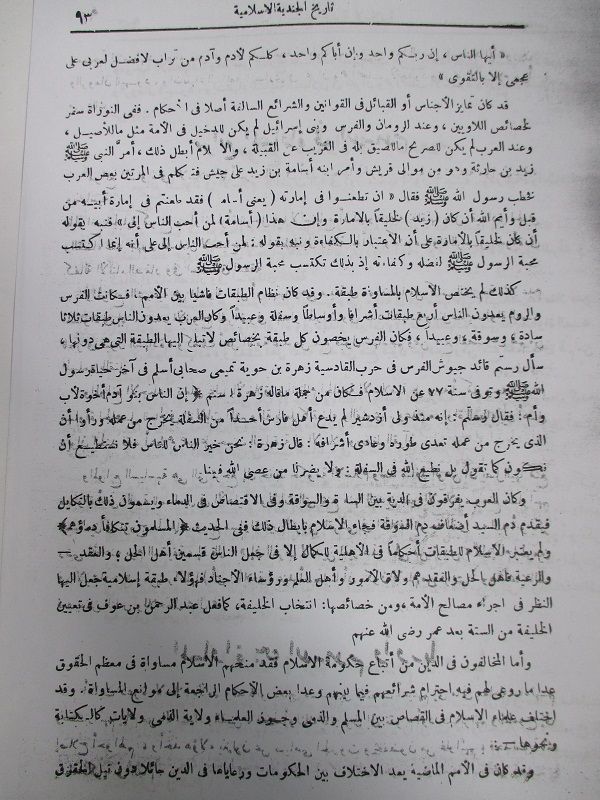 تاريخ الجندية الاسلامية ٩٣
« أيها الناس ، إن ربكم واحد وإن أباكم واحد ، كلكم لآدم وآدم من تراب لافضل لعربى على
عجمى إلا بالتقوى »
قد كان تمايز الأجناس أو القبائل فى القوانين والشرائع السالفة أصلا فى أحكام . ففى التوراة سفر
لخصائص اللاويين ، وعند الرومان والفرس وبنى إسرائيل لم يكن للدخيل فى الأمة مثل ماللأصيل ،
وعند العرب لم يكن للصريح ماللصيق بله فى الغريب عن القبيلة ، والاسلام أبطل ذلك ، أمر النبى ﷺ
زيد بن حارثة وهو من موالى قريش وأمر ابنه أسامة بن زيد على جيش فتكلم فى المرتين بعض العرب
فخطب رسول الله ﷺ فقال « ان تطعنوا فى إمارته ( يعنى أسامة ) فقد طعنتم فى إمارة أبيه من
قبل وأيم الله أن كان ( زيد ) لخليقاً بالامارة وإن هذا ( أسامة ) لمن أحب الناس إلى » فنبه بقوله
أن كان لخليقاً بالأمارة على أن الأعتبار بالكفاءة ونبه بقوله : لمن أحب الناس إلى على أنه إنما اكتسب
محبة الرسول ﷺ لفضله وكفاءته إذ بذلك تكتسب محبة الرسول ﷺ
كذلك لم يختص الاسلام بالمساواة طبقة . وقد كان نظام الطبقات فاشيا بين الأمم ، فكانت الفرس
والروم يعدون الناس أربع طبقات أشرافا وأوساطاً وسفلة وعبيداً وكان العرب يعدون الناس طبقات ثلاثا
سادة ، وسوقة ، وعبيداً ، فكان الفرس يخصون كل طبقة بخصائص لاتبلغ إليها الطبقة التى هى دونها ،
سأل رستم قائد جيوش الفرس فى حرب القادسية زهرة بن حوية تميمى صحابى أسلم فى آخر حياة رسول
الله ﷺ وتوفى سنة ٧٧ عن الاسلام فكان من جملة ماقاله زهرة لرستم ﴿ إن الناس بنو آدم أخوة لأب
وأم : فقال رستم : إنه منذ ولى أردشير لم يدع أهل فارس أحداً من السفلة يخرج من عمله ورأوا أن
الذى يخرج من عمله تعدى طوره وعادى أشرافه : قال زهرة : نحن خير الناس للناس فلا نستطيع أن
نكون كما تقول بل نطيع الله فى السفلة : ولا يضرنا من عصى الله فينا
وكان العرب يفرقون فى الدية بين السادة والسوقة وفى الاقتصاص فى الدماء ويسمون ذلك بالتكايل
فيقدم دم السيد أضعاف دم السوقة فجاء الاسلام بابطال ذلك ففى الحديث ﴿ المسلمون تتكافأ دماؤهم ﴾
ولم يعتبر الاسلام للطبقات أحكاماً فى الأهلية للكمال إلا فى جعل الناس قسمين أهل الحل ، والعقد
والرعية فأهل الحل والعقد هم ولاة الأمور وأهل العلم ورؤساء الأجناد فهؤلاء طبقة إسلامية جعل اليها
النظر فى اجراء مصالح الأمة ، ومن خصائصها : انتخاب الخليفة ، كما فعل عبد الرحمن بن عوف فى تعيين
الخليفة من الستة بعد عمر رضى الله عنهم
وأما المخالفون فى الدين من أتباع حكومة الاسلام فقد منحهم الاسلام مساواة فى معظم الحقوق
عدا ماروعى لهم فيه احترام شرائعهم فيما بينهم وعدا بعض الأحكام الراجعة إلى موانع المساواة . وقد
اختلف علماء الاسلام فى القصاص بين المسلم والذمى وجمهور العلماء ولاية القاضى ولايات كالكتابة
ونحوها
وقد كان فى الأمم الماضية يعد الاختلاف بين الحكومات ورعاياها فى الدين حائلا دون نيل الحقوق